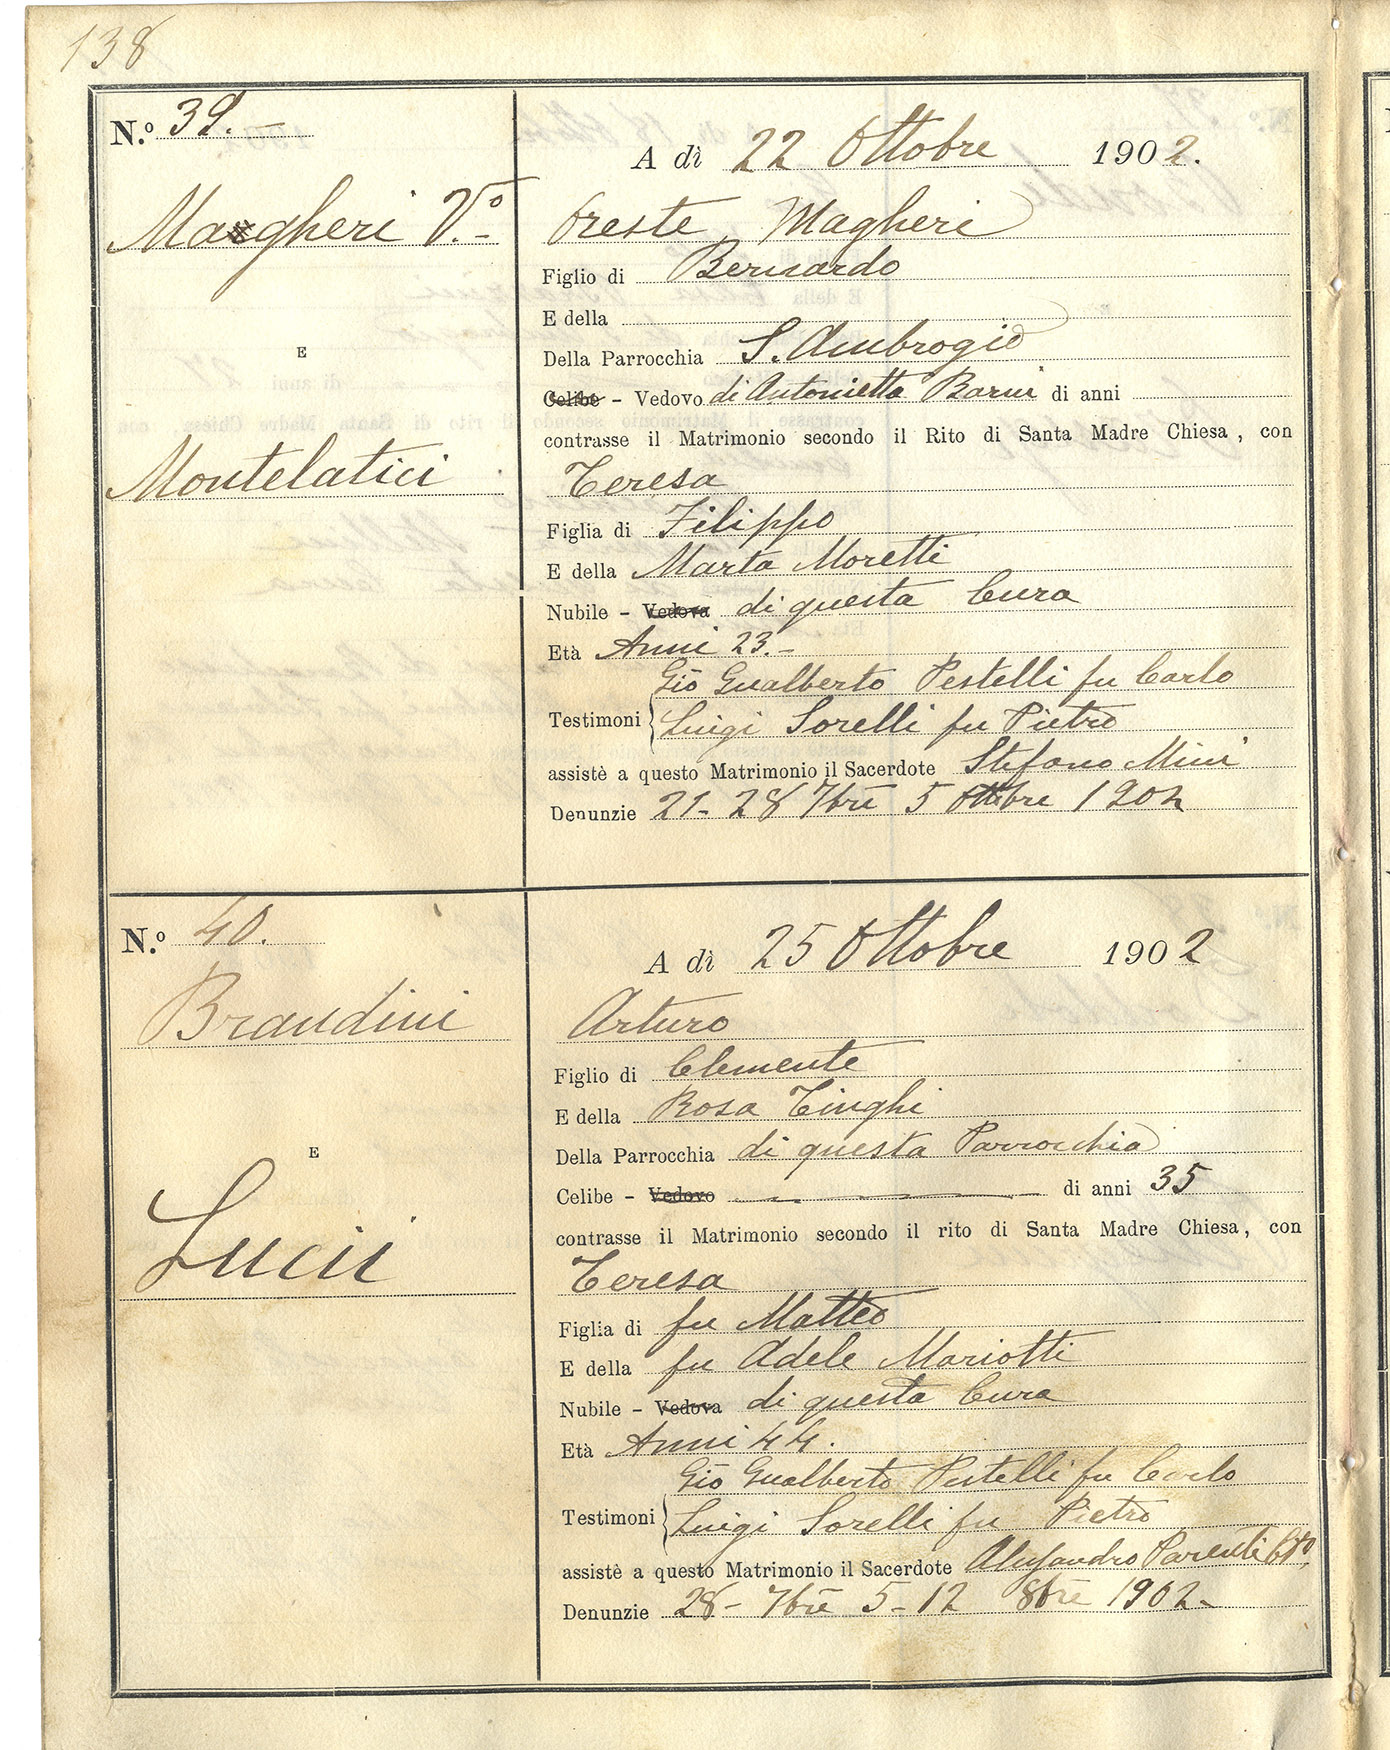 138
N.º 39.
Margheri V.º
E
Montelatici
A dì 22 Ottobre 1902.
Oreste Magheri
Figlio di Bernardo
E della
Della Parrocchia S. Ambrogio
Celibe - Vedovo di Antonietta Barni di anni
contrasse il Matrimonio secondo il Rito di Santa Madre Chiesa, con
Teresa
Figlia di Filippo
E della Marta Moretti
Nubile - Vedova di questa Cura
Età Anni 23.-
Gio Gualberto Pestelli fu Carlo
Testimoni
Luigi Sorelli fu Pietro
assistè a questo Matrimonio il Sacerdote Stefano Mini
Denunzie 21- 28 7bre 5 Ottbre 1902
N.º 40.
Brandini
E
Lucii
A dì 25 Ottobre 1902
Arturo
Figlio di Clemente
E della Rosa Tinghi
Della Parrocchia di questa Parrocchia
Celibe - Vedovo di anni 35
contrasse il Matrimonio secondo il rito di Santa Madre Chiesa, con
Teresa
Figlia di fu Matteo
E della fu Adele Mariotti
Nubile - Vedova di questa Cura
Età Anni 44.
Gio Gualberto Pestelli fu Carlo
Testimoni
Luigi Sorelli fu Pietro
assistè a questo Matrimonio il Sacerdote Alessandro Parenti
Denunzie 28- 7bre 5-12 8bre 1902-